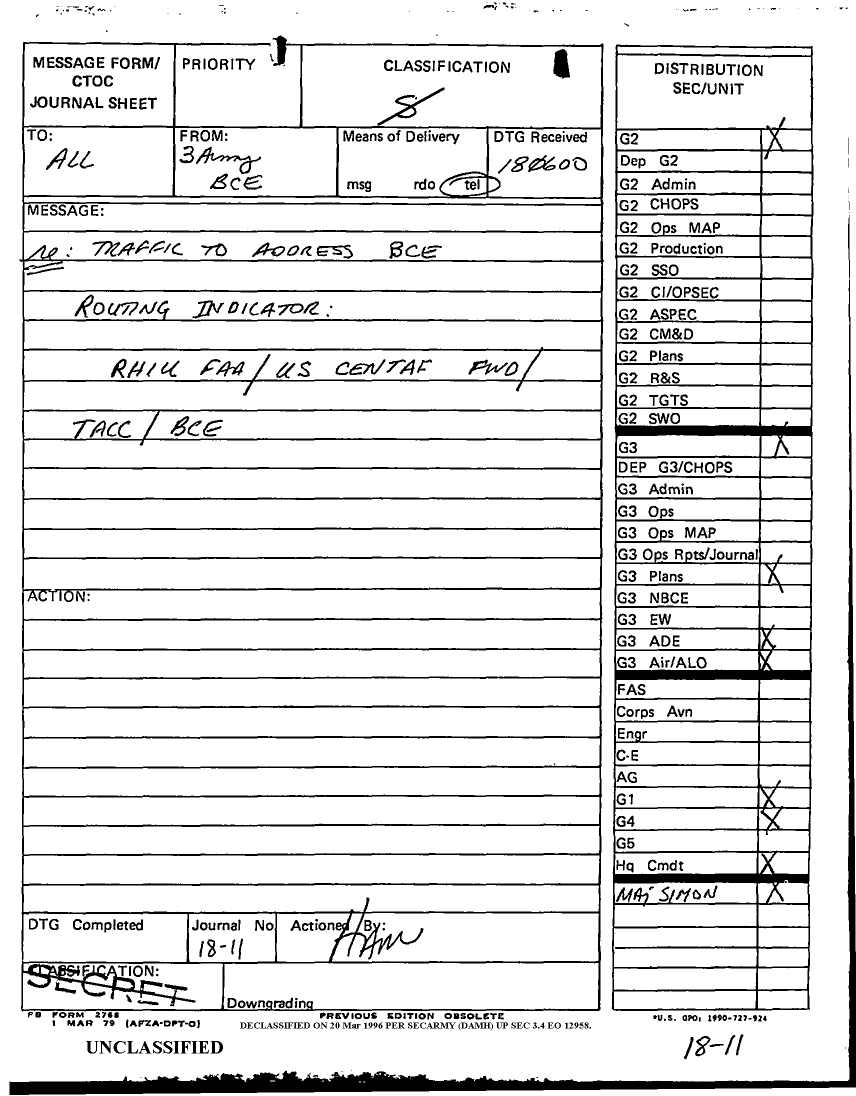 MESSAGE FORM/
CTOC
JOURNAL SHEET
PRIORITY
CLASSIFICATION
S
TO:
ALL
FROM:
3 Army
BCE
Means of Delivery
msg rdo tel
DTG Received
180600
MESSAGE:
re: TRAFFIC TO ADDRESS BCE
ROUTING INDICATOR:
FAA/US CENTAF FWD/
TACC/BCE
ACTION:
DTG Completed
Journal No.
18-11
Actioned By:
HAM
CLASSIFICATION:
SECRET
Downgrading
FB FORM 2768
1 MAR 79 (AFZA-DPT-O)
PREVIOUS EDITION OBSOLETE
DECLASSIFIED ON 20 Mar 1996 PER SECARMY (DAMH) UP SEC 3.4 EO 12958.
UNCLASSIFIED
DISTRIBUTION
SEC/UNIT
G2 X
Dep G2
G2 Admin
G2 CHOPS
G2 Ops MAP
G2 Production
G2 SSO
G2 CI/OPSEC
G2 ASPEC
G2 CM&D
G2 Plans
G2 R&S
G2 TGTS
G2 SWO
G3 X
DEP G3/CHOPS
G3 Admin
G3 Ops
G3 Ops MAP
G3 Ops Rpts/Journal
G3 Plans X
G3 NBCE
G3 EW
G3 ADE X
G3 Air/ALO X
FAS
Corps Avn
Engr
C-E
AG
G1 X
G4 X
G5
Hq Cmdt X
MAj SIMON X
*U.S. GPO: 1990-727-924
18-11